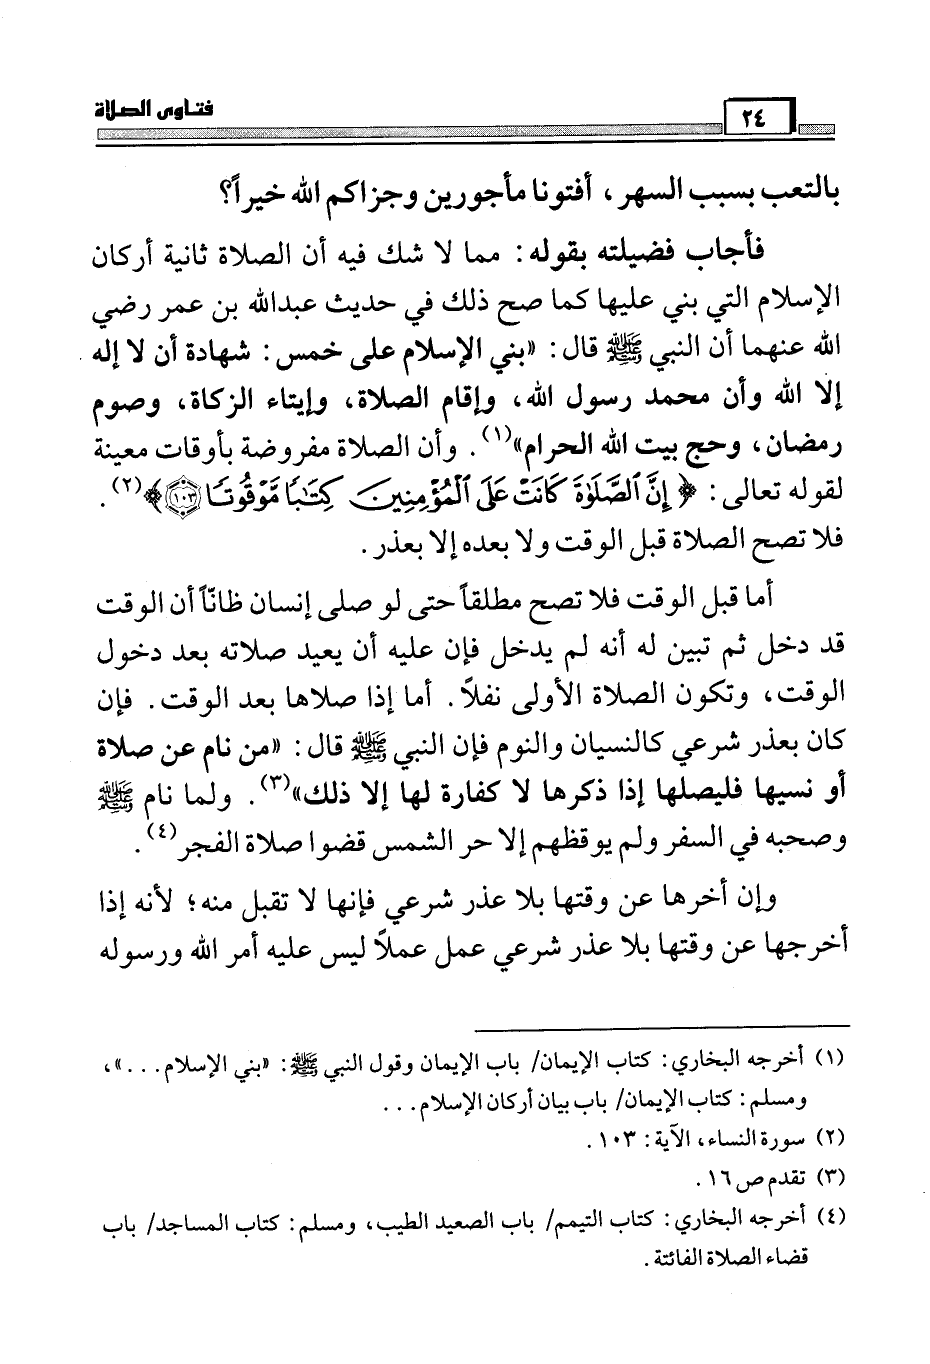 فتاوى الصلاة
٢٤
بالتعب بسبب السهر، أفتونا مأجورين وجزاكم الله خيراً؟
فأجاب فضيلته بقوله: مما لا شك فيه أن الصلاة ثانية أركان
الإسلام التي بني عليها كما صح ذلك في حديث عبدالله بن عمر رضي
الله عنهما أن النبي ﷺ قال: «بني الإسلام على خمس: شهادة أن لا إله
إلا الله وأن محمد رسول الله، وإقام الصلاة، وإيتاء الزكاة، وصوم
رمضان، وحج بيت الله الحرام»(١). وأن الصلاة مفروضة بأوقات معينة
لقوله تعالى: ﴿إِنَّ ٱلصَّلَوٰةَ كَانَتْ عَلَى ٱلْمُؤْمِنِينَ كِتَٰبًا مَّوْقُوتًا ١٠٣﴾(٢).
فلا تصح الصلاة قبل الوقت ولا بعده إلا بعذر.
أما قبل الوقت فلا تصح مطلقاً حتى لو صلى إنسان ظانّاً أن الوقت
قد دخل ثم تبين له أنه لم يدخل فإن عليه أن يعيد صلاته بعد دخول
الوقت، وتكون الصلاة الأولى نفلاً. أما إذا صلاها بعد الوقت. فإن
كان بعذر شرعي كالنسيان والنوم فإن النبي ﷺ قال: «من نام عن صلاة
أو نسيها فليصلها إذا ذكرها لا كفارة لها إلا ذلك»(٣). ولما نام ﷺ
وصحبه في السفر ولم يوقظهم إلا حر الشمس قضوا صلاة الفجر(٤).
وإن أخرها عن وقتها بلا عذر شرعي فإنها لا تقبل منه؛ لأنه إذا
أخرجها عن وقتها بلا عذر شرعي عمل عملاً ليس عليه أمر الله ورسوله
(١) أخرجه البخاري: كتاب الإيمان/ باب الإيمان وقول النبي ﷺ: «بني الإسلام...»،
ومسلم: كتاب الإيمان/ باب بيان أركان الإسلام...
(٢) سورة النساء، الآية: ١٠٣.
(٣) تقدم ص١٦.
(٤) أخرجه البخاري: كتاب التيمم/ باب الصعيد الطيب، ومسلم: كتاب المساجد/ باب
قضاء الصلاة الفائتة.